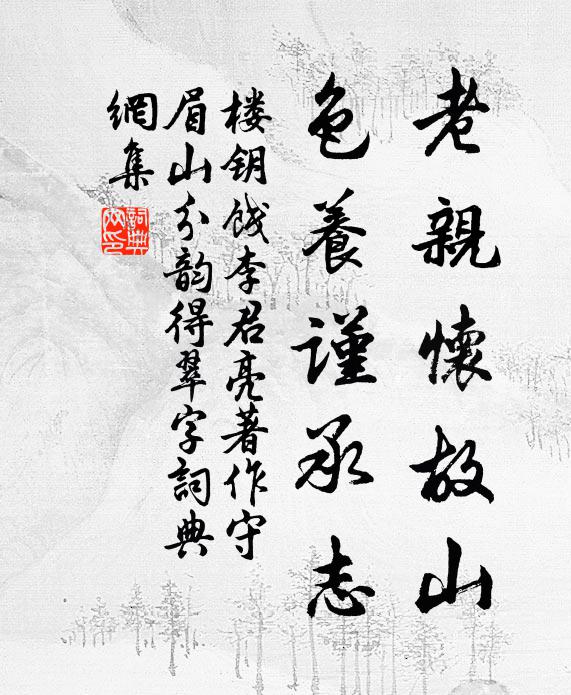 老親懷故山
色養謹承志
楼钥饯李君亮著作守
眉山分韵得翠字詞典
網集
詞典網印